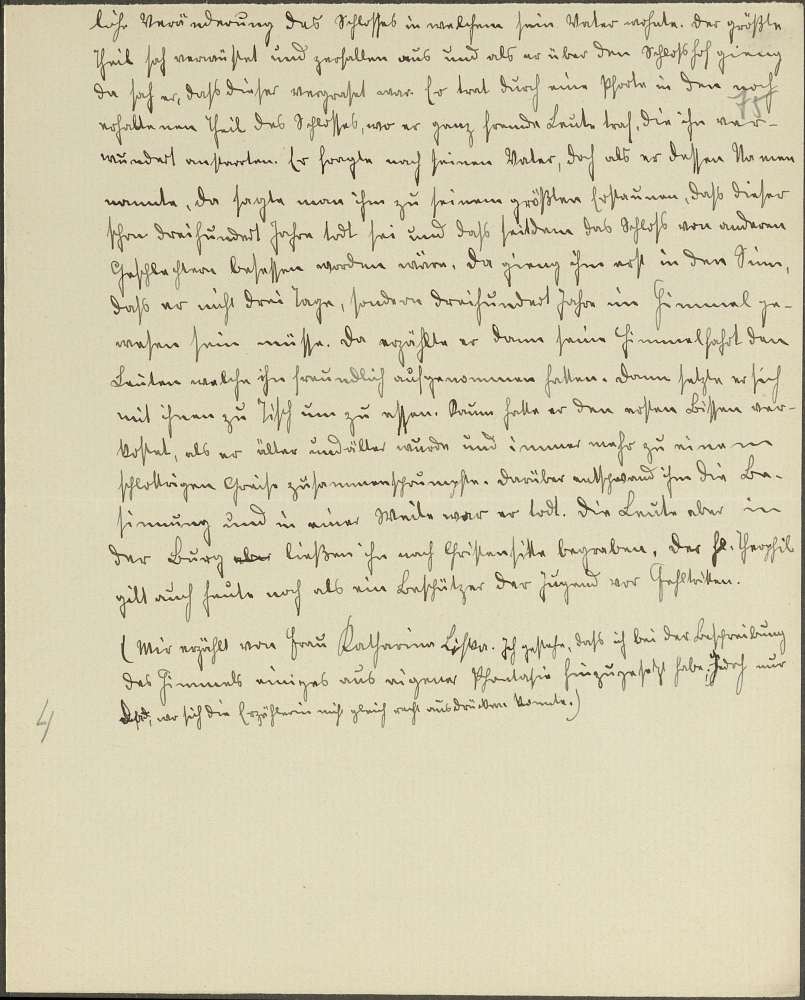 liche Veränderung des Schlosses in welchem sein Vater wohnte. Der größte
Theil sah verwüstet und zerfallen aus und als er über den Schlosshof gieng
da sah er, dass dieser vergraset war. Er trat durch eine Pforte in den noch
75
erhaltenen Theil des Schlosses, wo er ganz fremde Leute traf, die ihn ver-
wundert anstarrten. Er fragte nach seinem Vater, doch als er dessen Namen
nannte, da sagte man ihm zu seinem größten Erstaunen, dass dieser
schon dreihundert Jahre todt sei und dass seitdem das Schloss von anderen
Geschlechtern besessen worden wäre. Da gieng ihm erst in den Sinn,
dass er nicht drei Tage, sondern dreihundert Jahre im Himmel ge-
wesen sein müsse. Da erzählte er dann seine Himmelfahrt den
Leuten welche ihn freundlich aufgenommen hatten. Dann setzte er sich
mit ihnen zu Tisch um zu essen. Kaum hatte er den ersten Bissen ver-
kostet, als er älter und älter wurde und immer mehr zu einem
schlottrigen Greise zusammenschrumpfte. Darüber entschwand ihm die Be-
sinnung und in einer Weile war er todt. Die Leute aber in
der Burg aber ließen ihn nach Christensitte begraben. Der hl. Theophil
gilt auch heute noch als ein Beschützer der Jugend vor Fehltritten.
(Mir erzählt von Frau Katharina Liska. Ich gestehe, dass ich bei der Beschreibung
des Himmels einiges aus eigener Phantasie hinzugesetzt habe, jedoch nur
dort, wo sich die Erzählerin nicht gleich recht ausdrücken konnte.)
4